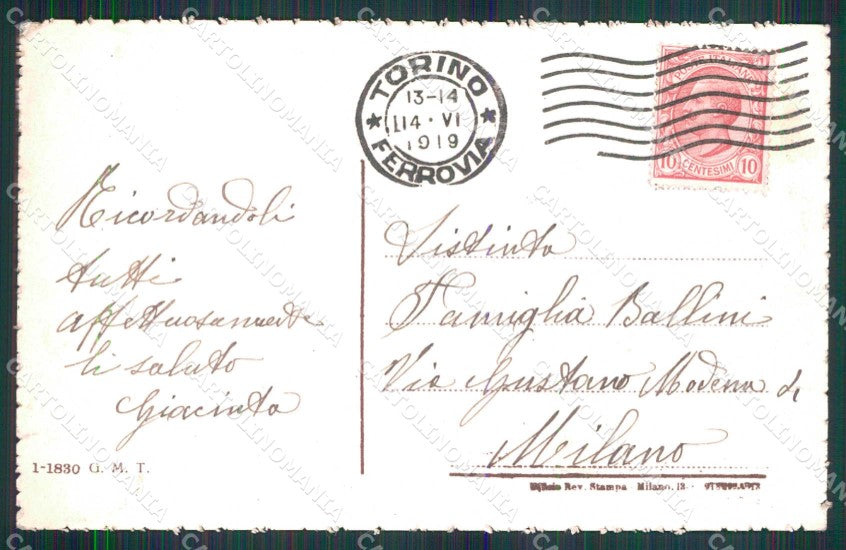 TORINO
13-14
14 · VI
1919
FERROVIA
POSTE ITALIANE
10 CENTESIMI 10
Ricordandoli
tutti
affettuosamente
li saluto
Giacinta
1-1830 G. M. T.
Distinta
Famiglia Ballini
Via Gustavo Modena
Milano
Ufficio Rev. Stampa Milano, 13 -
CARTOLINOMANIA